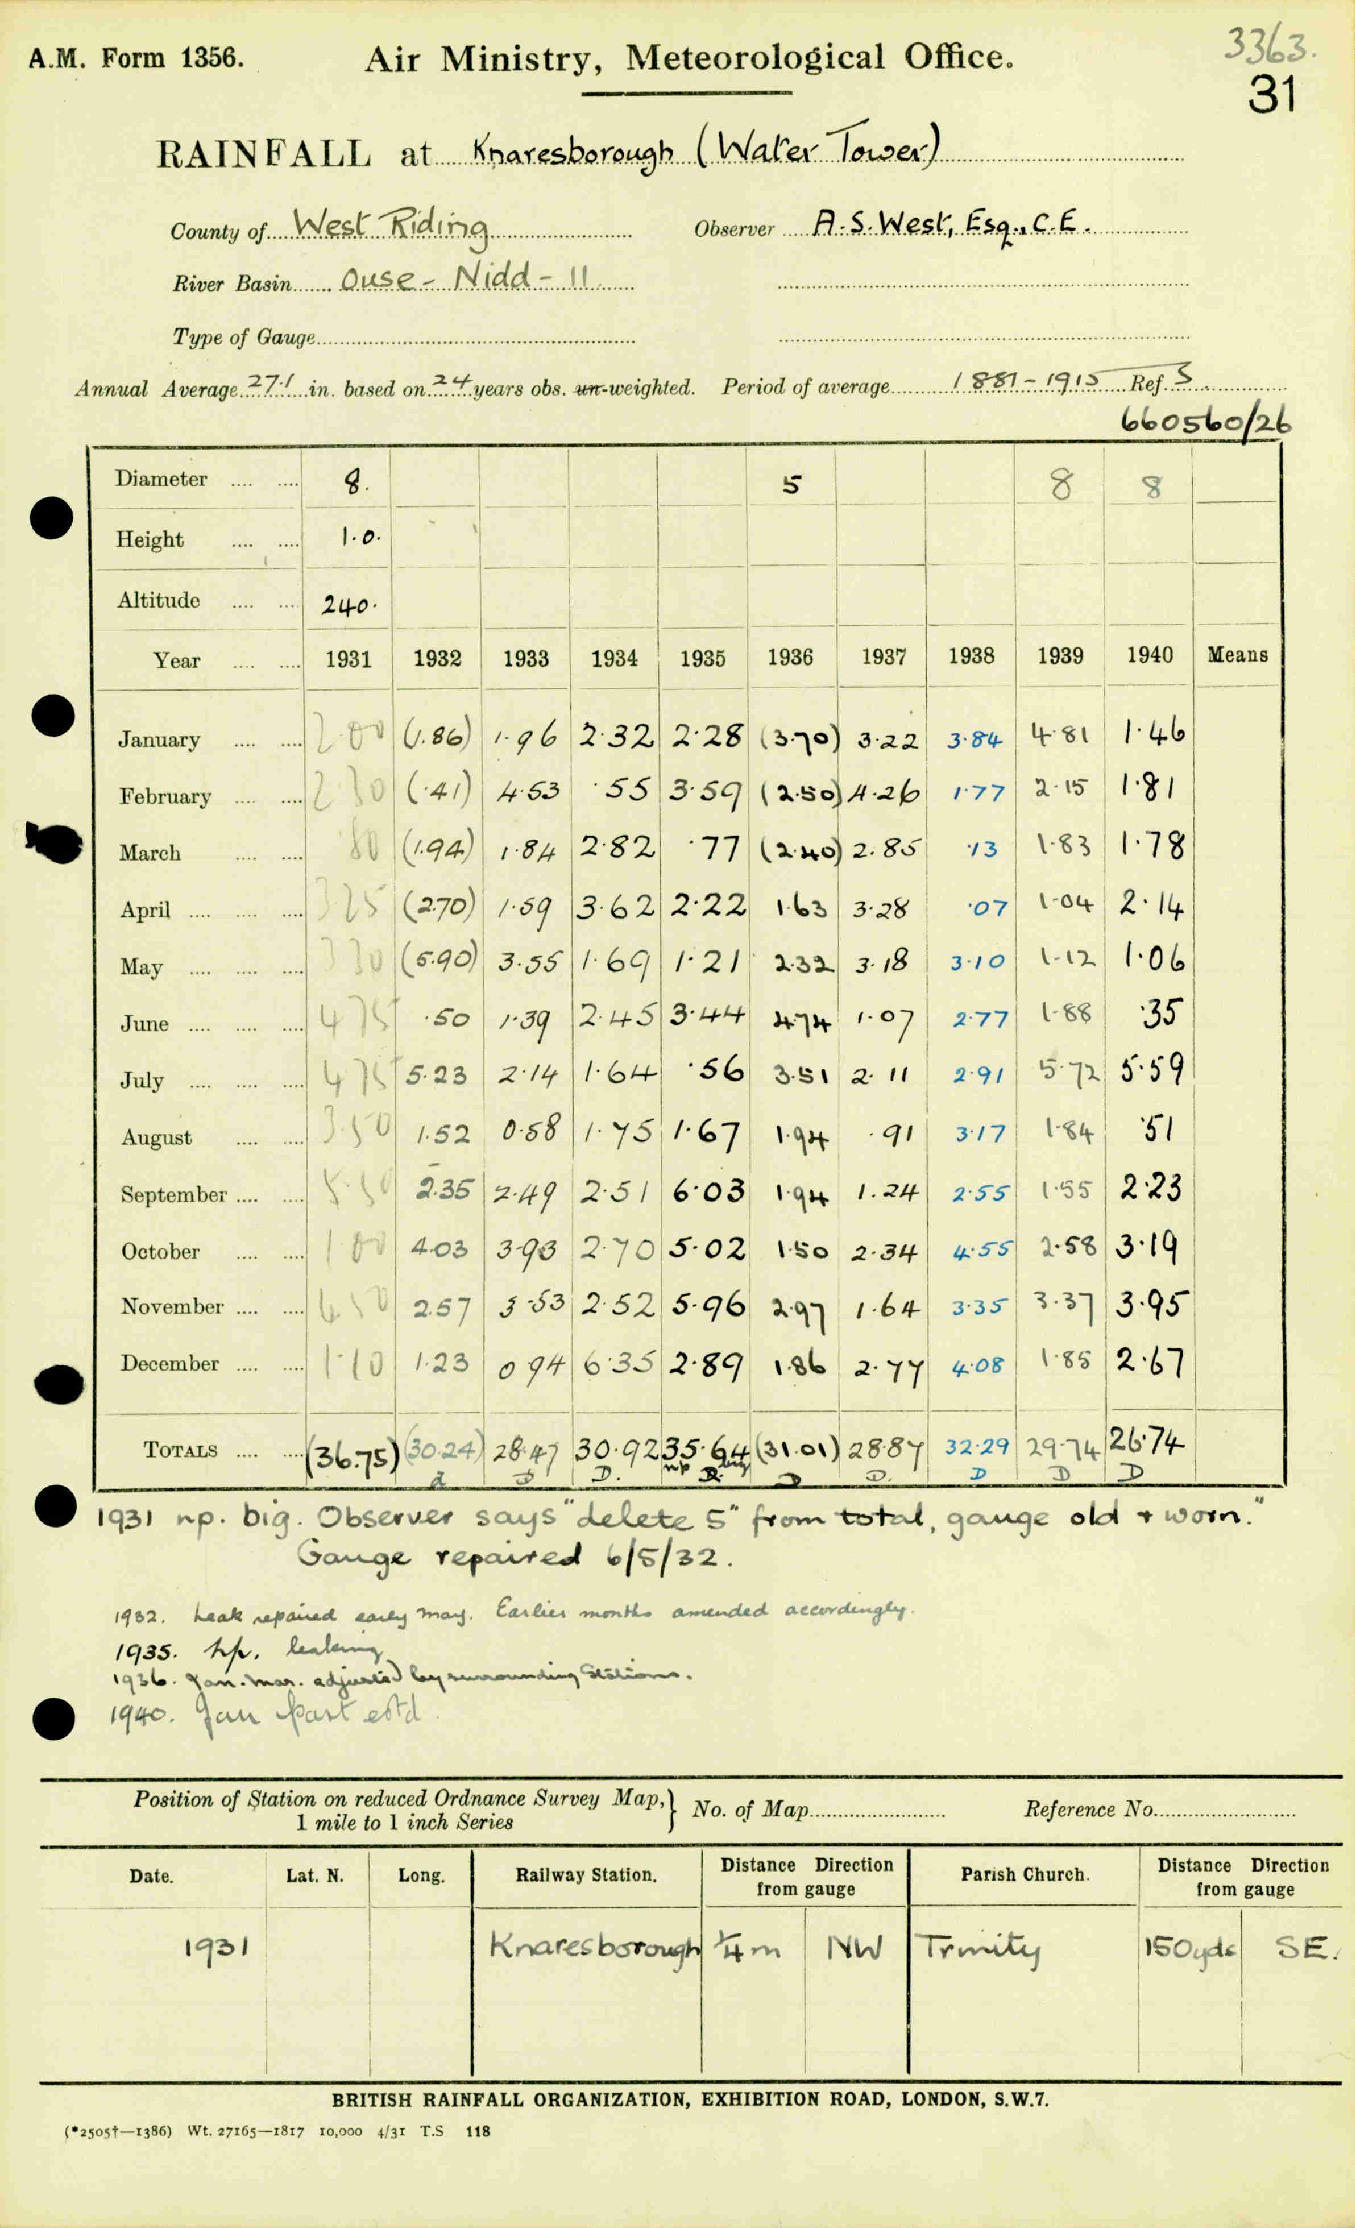 3363.
A.M. Form 1356. Air Ministry, Meteorological Office.
31
RAINFALL at Knaresborough (Water Tower)
County of West Riding Observer A.S. West, Esq., C.E.
River Basin Ouse - Nidd - 11
Type of Gauge
Annual Average 27.1 in. based on 24 years obs. un-weighted. Period of average 1881-1915 Ref. S.
660560/26
Diameter 8. 5 8 8
Height 1.0.
Altitude 240.
Year 1931 1932 1933 1934 1935 1936 1937 1938 1939 1940 Means
January 2.00 (1.86) 1.96 2.32 2.28 (3.70) 3.22 3.84 4.81 1.46
February 2.30 (.41) 4.53 .55 3.59 (2.50) 4.26 1.77 2.15 1.81
March .80 (1.94) 1.84 2.82 .77 (2.40) 2.85 .13 1.83 1.78
April 3.25 (2.70) 1.59 3.62 2.22 1.63 3.28 .07 1.04 2.14
May 3.30 (5.90) 3.55 1.69 1.21 2.32 3.18 3.10 1.12 1.06
June 4.75 .50 1.39 2.45 3.44 4.74 1.07 2.77 1.88 .35
July 4.75 5.23 2.14 1.64 .56 3.51 2.11 2.91 5.72 5.59
August 3.50 1.52 0.58 1.75 1.67 1.94 .91 3.17 1.84 .51
September 5.50 2.35 2.49 2.51 6.03 1.94 1.24 2.55 1.55 2.23
October 1.00 4.03 3.93 2.70 5.02 1.50 2.34 4.55 2.58 3.19
November 4.50 2.57 3.53 2.52 5.96 2.97 1.64 3.35 3.37 3.95
December 1.10 1.23 0.94 6.35 2.89 1.86 2.77 4.08 1.85 2.67
TOTALS (36.75) (30.24) 28.47 30.92 35.64 (31.01) 28.87 32.29 29.74 26.74
D D np D big D D D D D
1931 np. big. Observer says "delete 5" from total, gauge old + worn."
Gauge repaired 6/5/32.
1932. Leak repaired early May. Earlier months amended accordingly.
1935. np. leaking
1936. Jan. Mar. adjusted by surrounding Stations.
1940. Jan part estd.
Position of Station on reduced Ordnance Survey Map, } No. of Map Reference No.
1 mile to 1 inch Series
Date. Lat. N. Long. Railway Station. Distance Direction from gauge Parish Church. Distance Direction from gauge
1931 Knaresborough 1/4 m NW Trinity 150 yds SE.
BRITISH RAINFALL ORGANIZATION, EXHIBITION ROAD, LONDON, S.W.7.
(*2505†—1386) Wt. 27165—1817 10,000 4/31 T.S 118